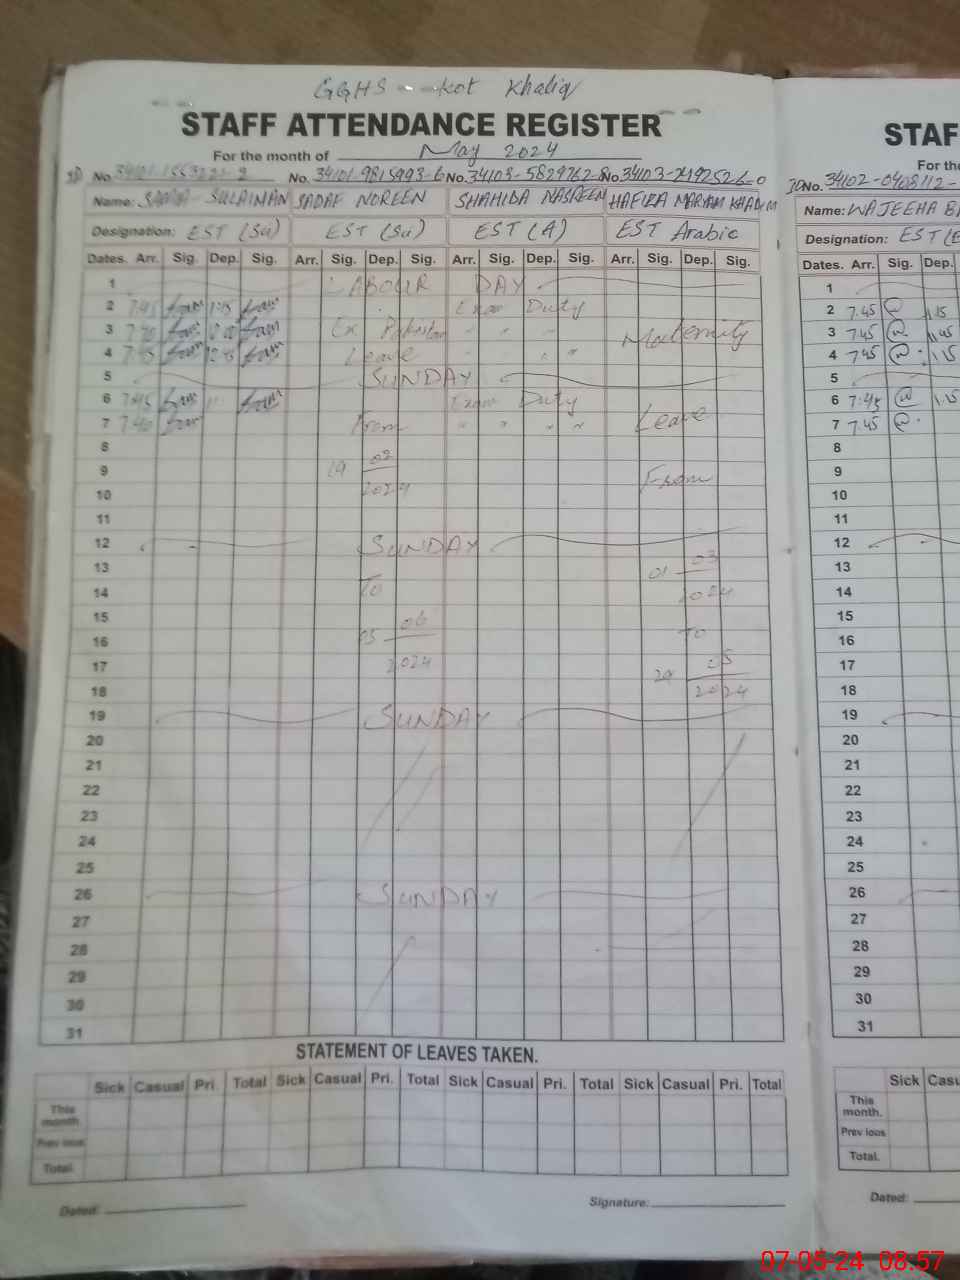 GGHS - - Kot Khaliq
STAFF ATTENDANCE REGISTER
For the month of May 2024
ID No. 34101-1553221-2 No. 34101-9815993-6 No. 34103-5829762-8 No. 34103-7492526-0
Name: SADIA SULAIMAN SADAF NOREEN SHAHIDA NASREEN HAFIZA MARYAM KHADIM
Designation: EST (Sci) EST (Sci) EST (A) EST Arabic
Dates. Arr. Sig. Dep. Sig. Arr. Sig. Dep. Sig. Arr. Sig. Dep. Sig. Arr. Sig. Dep. Sig.
1 LABOUR DAY
2 7:45 1:15 Exam Duty
3 Ex Pakistan " " " Maternity
4 7:45 12:45 Leave " " " "
5 SUNDAY
6 7:45 Exam Duty
7 7:40 From " " " " Leave
8
9 19 02 From
10 2024
11
12 SUNDAY
13 01 03
14 To 2024
15
16 05 06 To
17 2024 29 05
18 2024
19 SUNDAY
20
21
22
23
24
25
26 SUNDAY
27
28
29
30
31
STATEMENT OF LEAVES TAKEN.
Sick Casual Pri. Total Sick Casual Pri. Total Sick Casual Pri. Total Sick Casual Pri. Total
This month.
Prev ious
Total.
Dated: Signature:
STAF
For the
ID No. 34102-0408112-
Name: WAJEEHA
Designation: EST
Dates. Arr. Sig. Dep.
1
2 7.45 1.15
3 7.45 11.45
4 7.45 1.15
5
6 7.45 1.15
7 7.45
8
9
10
11
12
13
14
15
16
17
18
19
20
21
22
23
24
25
26
27
28
29
30
31
Sick Casu
This month.
Prev ious
Total.
Dated:
07-05-24 08:57